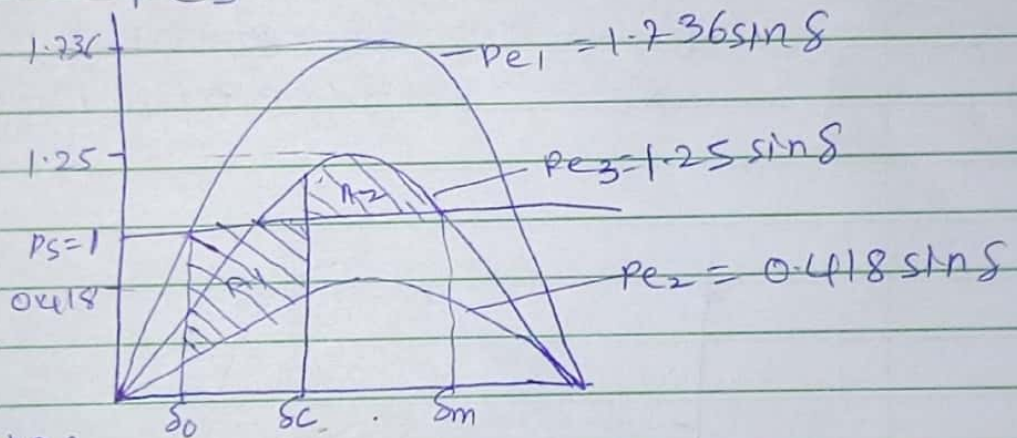 1.736
Pe1 = 1.736 sin δ
1.25
Pe3 = 1.25 sin δ
A2
Ps=1
A1
0.418
Pe2 = 0.418 sin δ
δ0 δc δm